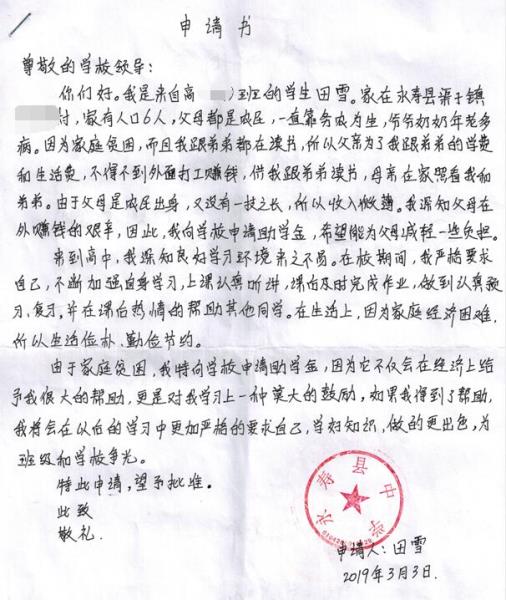 申请书
尊敬的学校领导：
你们好。我是来自高 )班的学生田雪。家在永寿县渠子镇
村，家有人口6人，父母都是农民，一直靠务农为生，爷爷奶奶年老多
病。因为家庭贫困，而且我跟弟弟都在读书，所以父亲为了我跟弟弟的学费
和生活费，不得不到外面打工赚钱，供我跟弟弟读书，母亲在家照看我和
弟弟。由于父母是农民出身，又没有一技之长，所以收入微薄。我深知父母在
外赚钱的艰辛，因此，我向学校申请助学金，希望能为父母减轻一些负担。
来到高中，我深知良好学习环境来之不易。在校期间，我严格要求
自己，不断加强自身学习，上课认真听讲，课后及时完成作业，做到认真预
习、复习。并在课后热情的帮助其他同学。在生活上，因为家庭经济困难，
所以生活俭朴、勤俭节约。
由于家庭贫困，我特向学校申请助学金，因为它不仅会在经济上给
予我很大的帮助，更是对我学习上一种莫大的鼓励，如果我得到了帮助，
我将会在以后的学习中更加严格的要求自己，学好知识，做的更出色，为
班级和学校争光。
特此申请，望予批准。
此致
敬礼.
永寿县中学
申请人：田雪
2019年3月3日.